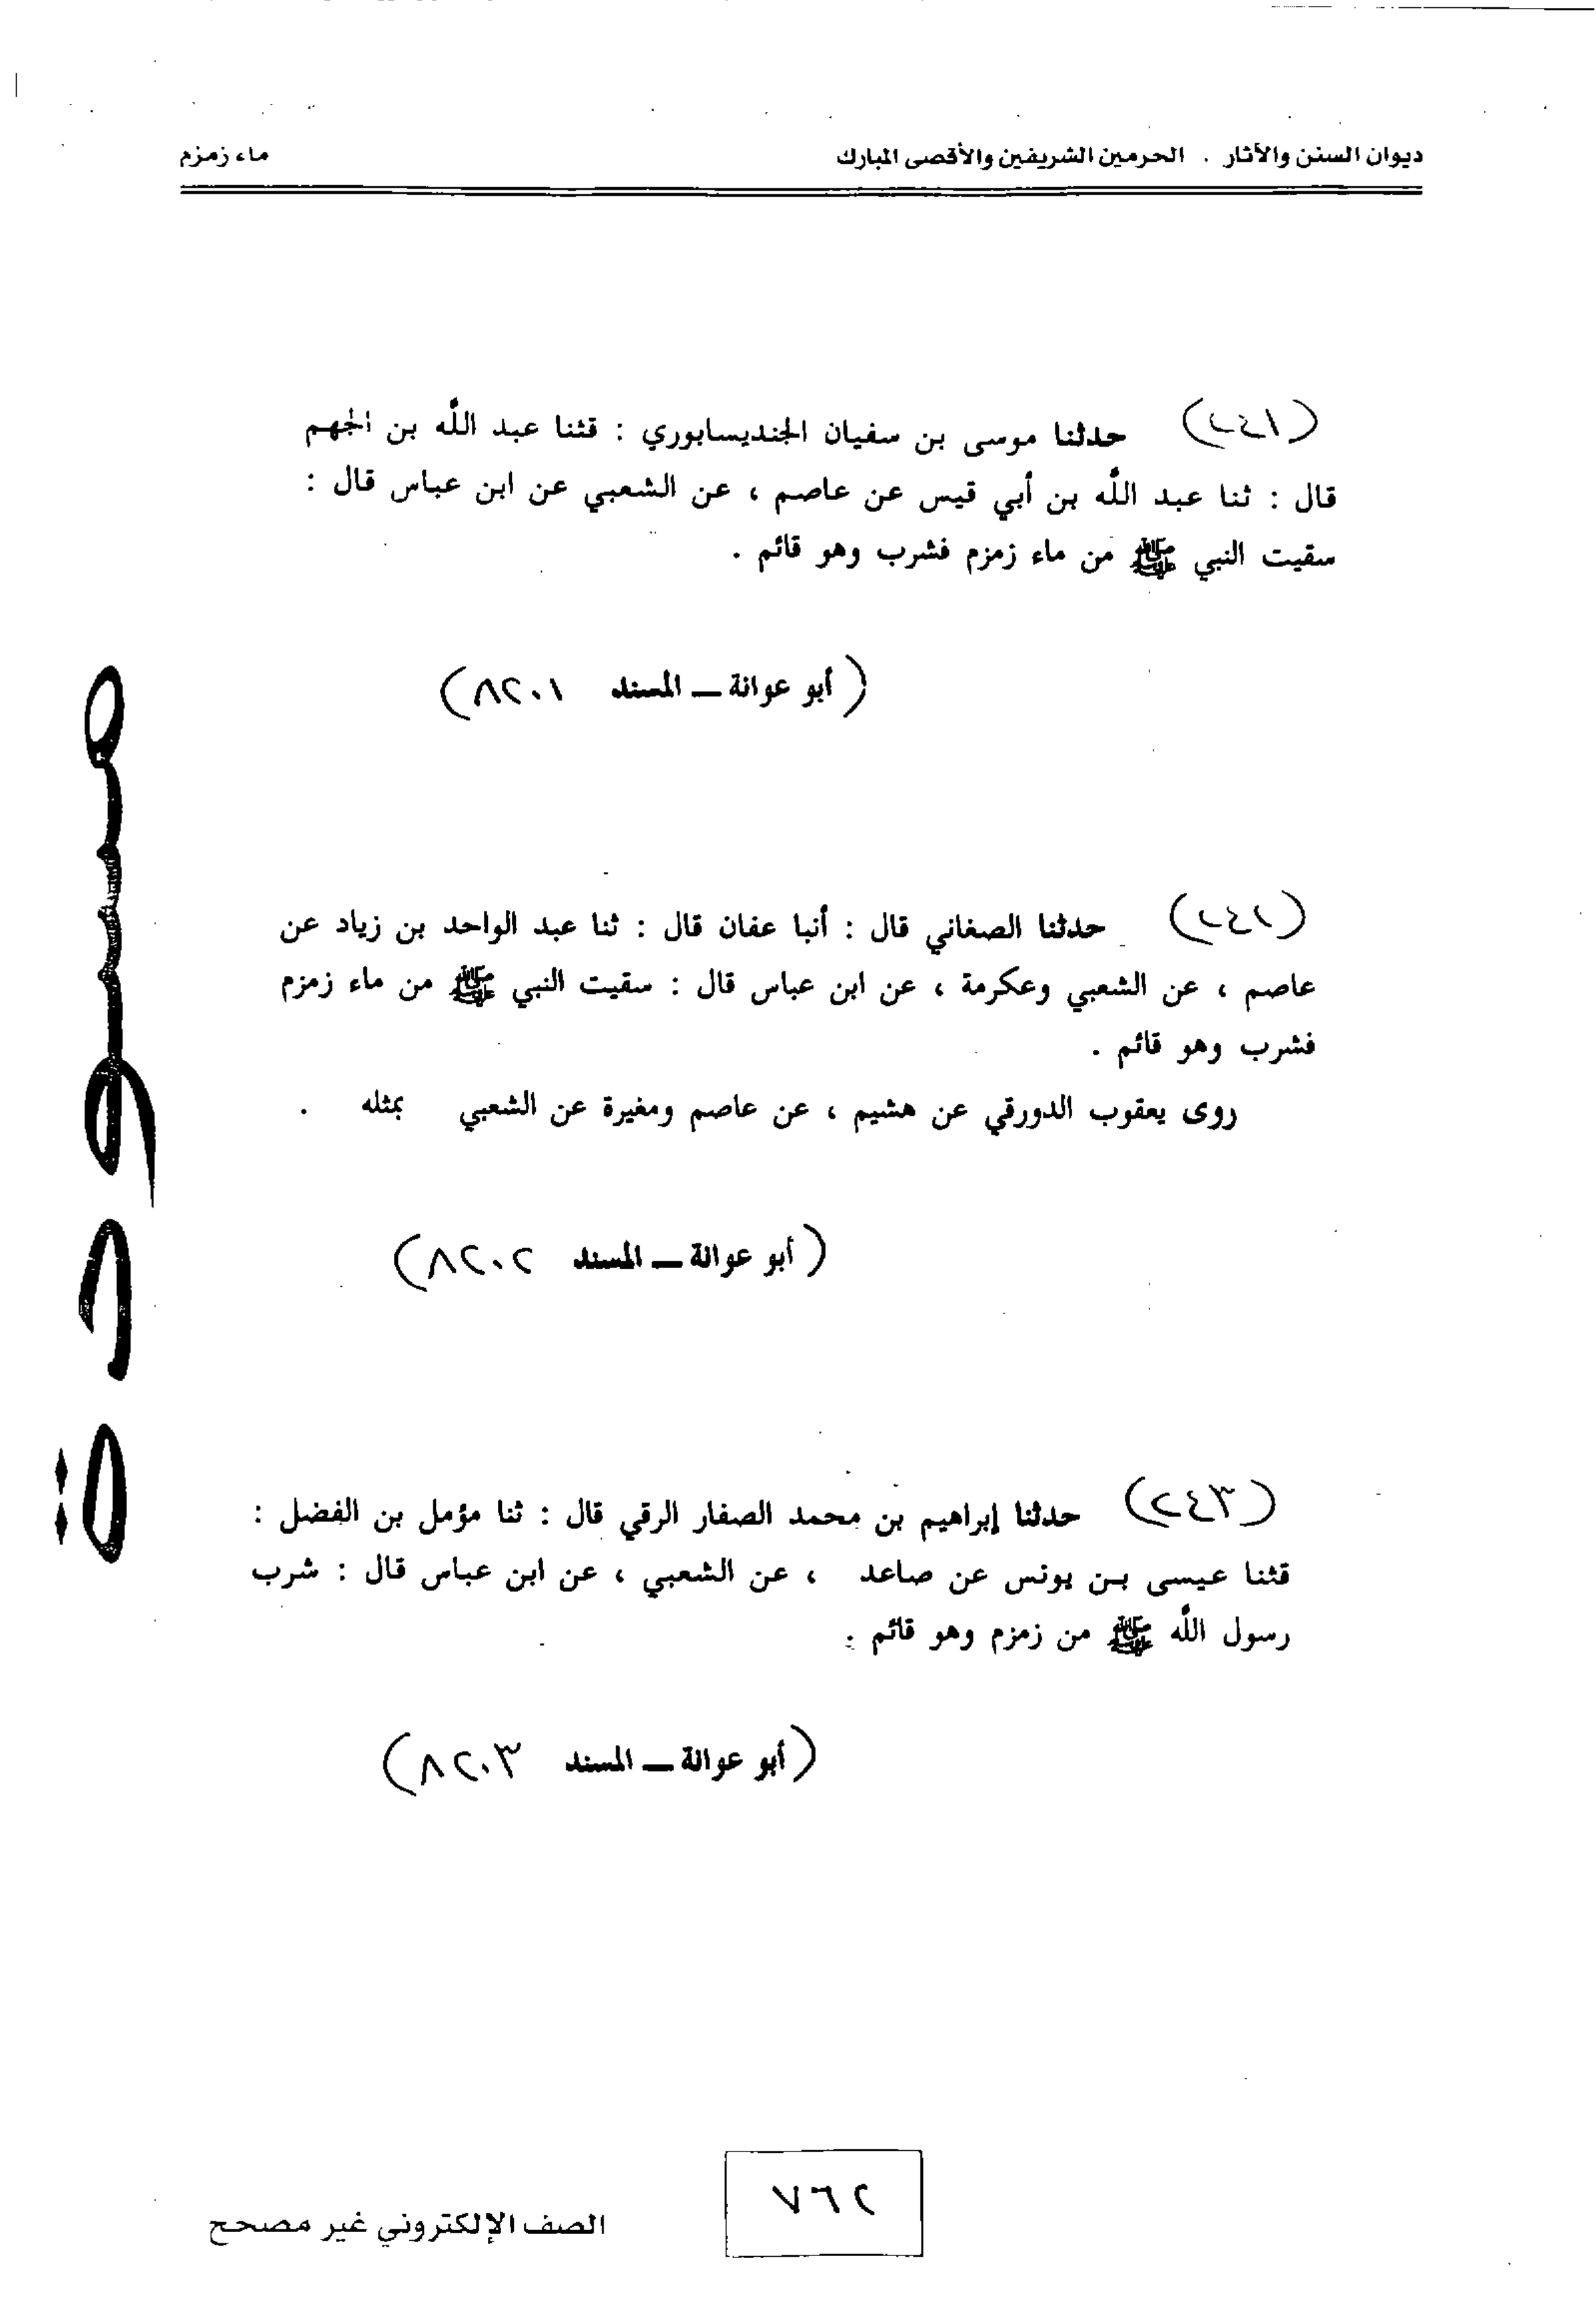 ديوان السنن والآثار . الحرمين الشريفين والأقصى المبارك ماء زمزم
(٢٤١) حدثنا موسى بن سفيان الجنديسابوري : قثنا عبد الله بن الجهم
قال : ثنا عبد الله بن أبي قيس عن عاصم ، عن الشعبي عن ابن عباس قال :
سقيت النبي ﷺ من ماء زمزم فشرب وهو قائم .
(أبو عوانة – المسند ٨٢٠١)
(٢٤٢) حدثنا الصغاني قال : أنبا عفان قال : ثنا عبد الواحد بن زياد عن
عاصم ، عن الشعبي وعكرمة ، عن ابن عباس قال : سقيت النبي ﷺ من ماء زمزم
فشرب وهو قائم .
روى يعقوب الدورقي عن هشيم ، عن عاصم ومغيرة عن الشعبي بمثله .
(أبو عوانة – المسند ٨٢٠٢)
(٢٤٣) حدثنا إبراهيم بن محمد الصفار الرقي قال : ثنا مؤمل بن الفضل :
قثنا عيسى بن يونس عن صاعد ، عن الشعبي ، عن ابن عباس قال : شرب
رسول الله ﷺ من زمزم وهو قائم .
(أبو عوانة – المسند ٨٢٠٣)
مسودة
٧٦٢
الصف الإلكتروني غير مصحح